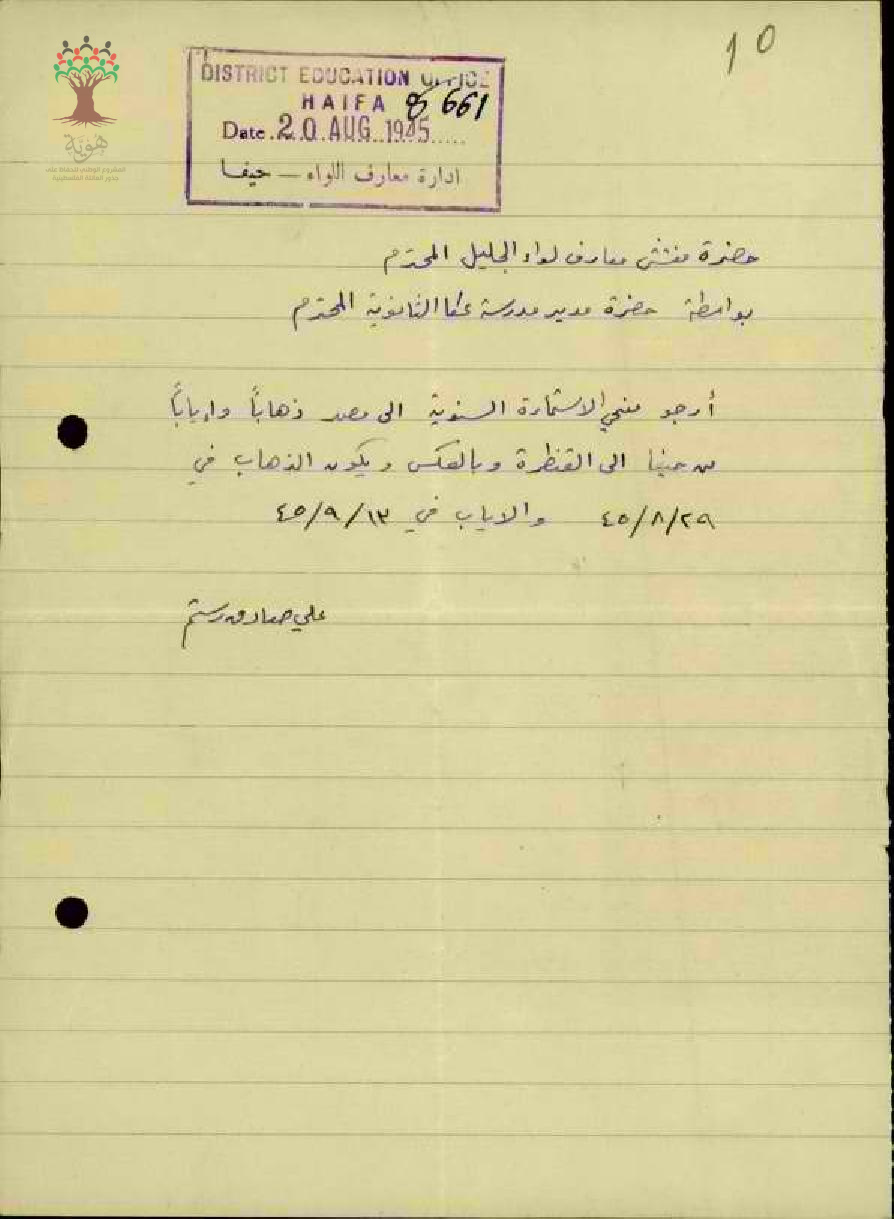 10
DISTRICT EDUCATION OFFICE
HAIFA 8661
Date 20 AUG 1945
ادارة معارف اللواء — حيفا
هوية
المشروع الوطني للحفاظ على
جذور العائلة الفلسطينية
حضرة مفتش معارف لواء الجليل المحترم
بواسطة حضرة مدير مدرسة عكا الثانوية المحترم
أرجو منحي الاستمارة السنوية الى مصر ذهاباً واياباً
من حيفا الى القنطرة وبالعكس ويكون الذهاب في
٤٥/٨/٢٩ والاياب في ٤٥/٩/١٣
علي صادق رستم